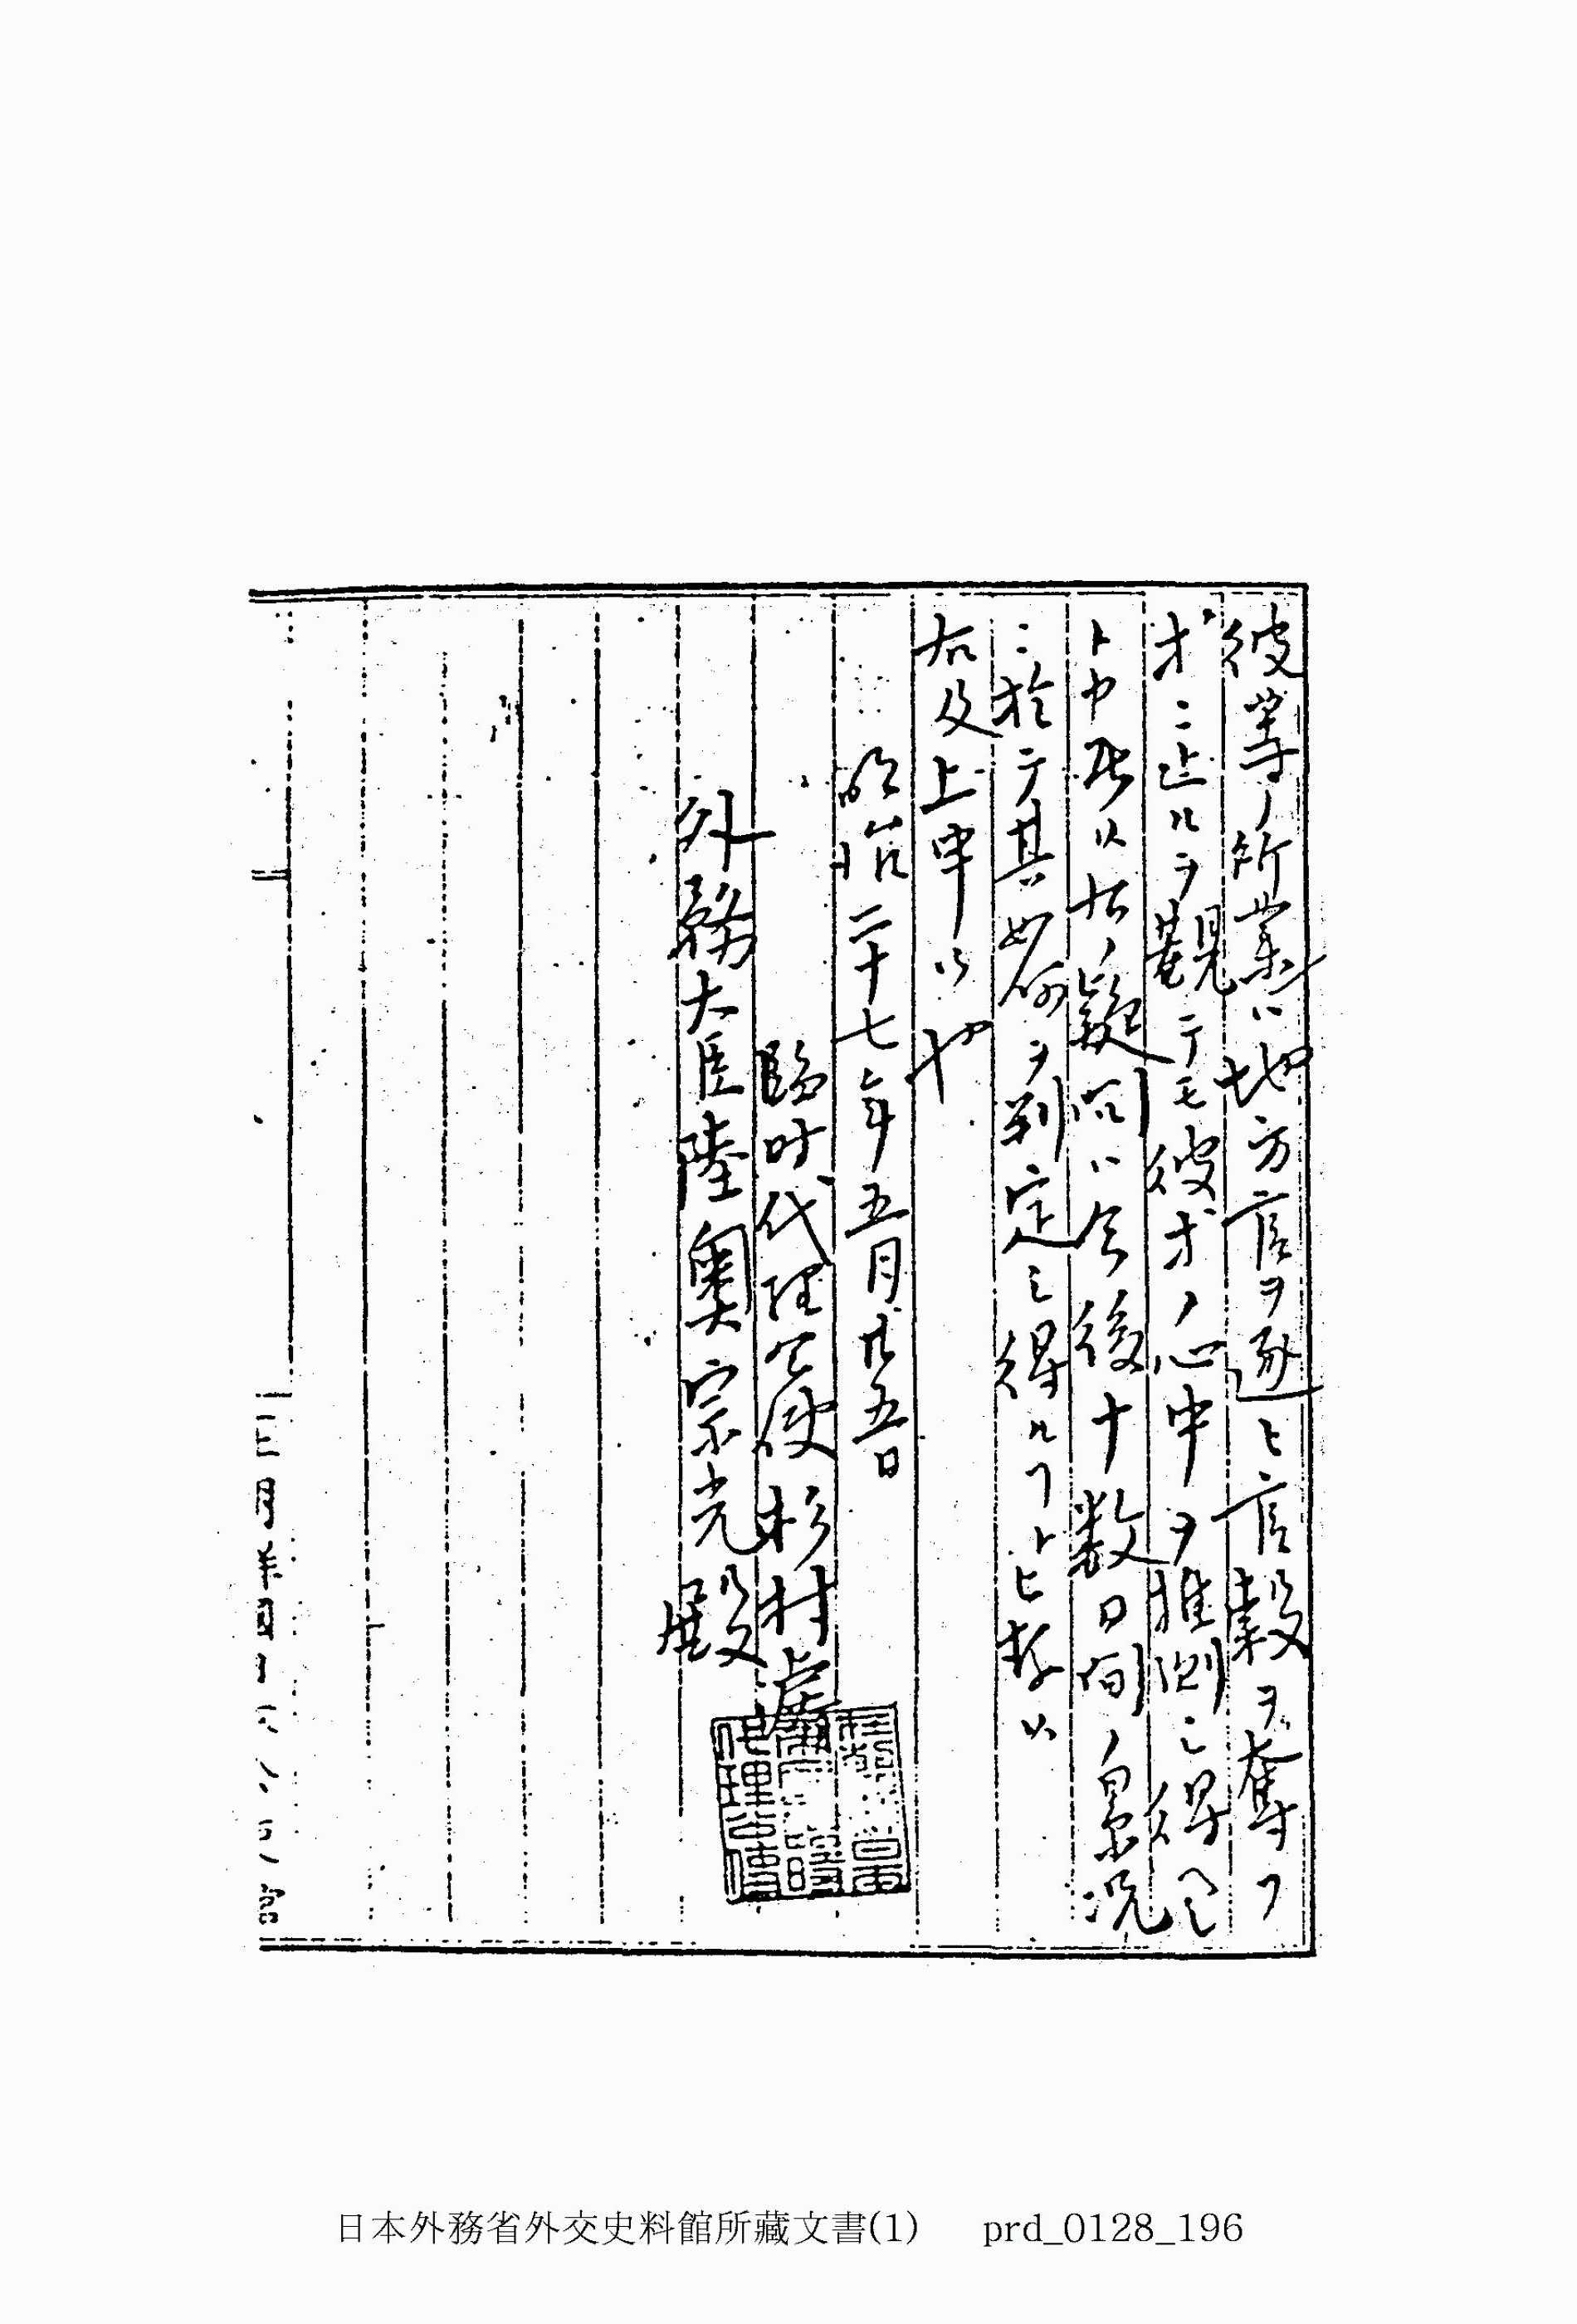 彼等ノ所業ハ地方官ヲ逐ヒ官穀ヲ奪フ
才ニ止ルヲ観テモ彼才ノ心中ヲ推測シ得ヘシ
ト申居候右ノ疑問ハ今後十数日間ノ景況
ニ於テ其如何ヲ判定シ得ルヿトヒ存候
右及上申候也
明治二十七年五月廿五日
臨時代理公使杉村濬
外務大臣陸奥宗光殿
日本外務省外交史料館所藏文書(1) prd_0128_196